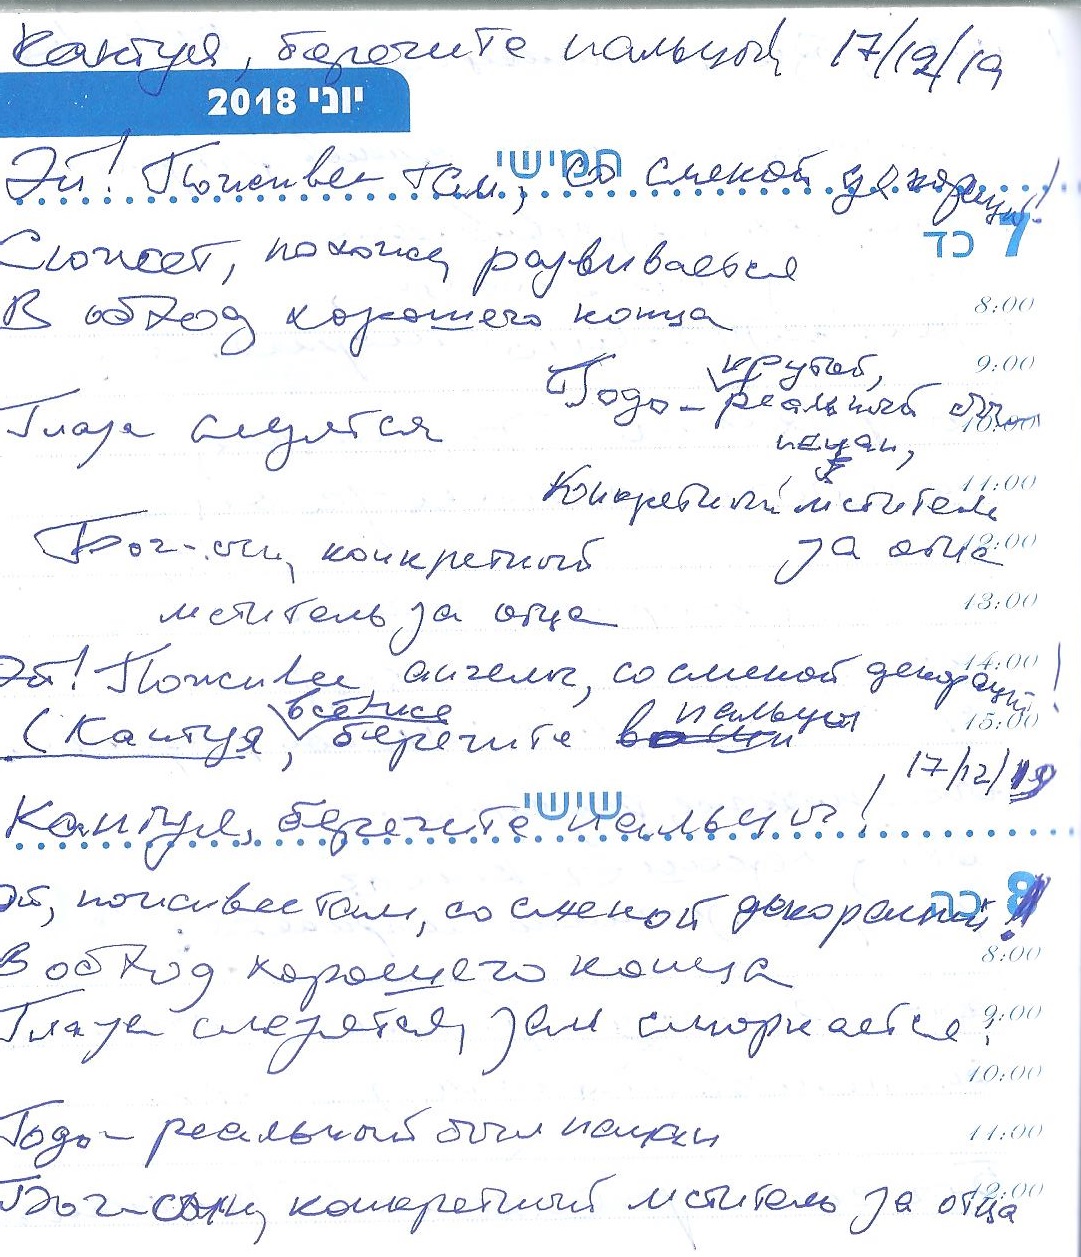 Кантуя, берегите пальцы! 17/12/19
יוני 2018
חמישי
Эй! Поживее там, со сменой декораций!
7 כד
Сюжет, похоже, развивается
8:00
В обход хорошего конца
9:00
крутой,
Годо – реальный был
10:00
Глаза слезятся
пацан,
11:00
Конкретный мститель
Бог-сын, конкретный
за отца
12:00
мститель за отца
13:00
14:00
Эй! Поживее, ангелы, со сменой декораций!
всё же
15:00
(Кантуя, берегите пальцы
17/12/19
שישי
Кантуя, берегите пальцы!
8 כה
Эй, поживее там, со сменой декораций!
8:00
В обход хорошего конца
9:00
Глаза слезятся, зал сморкается.
10:00
11:00
Годо – реальный был пацан
12:00
Бог-сын, конкретный мститель за отца